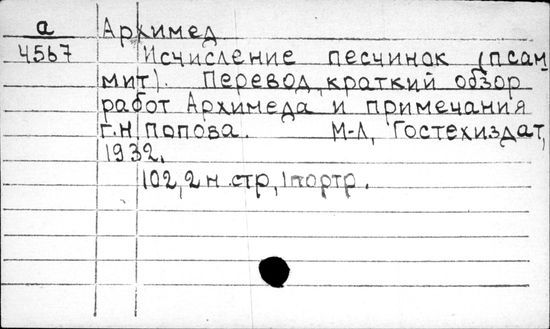 а Архимед
4567 Исчисление песчинок (псам-
мит). Перевод, краткий обзор
работ Архимеда и примечания
Г.Н. Попова. М-Л, Гостехиздат,
1932.
102, 2 н. стр, 1 портр.